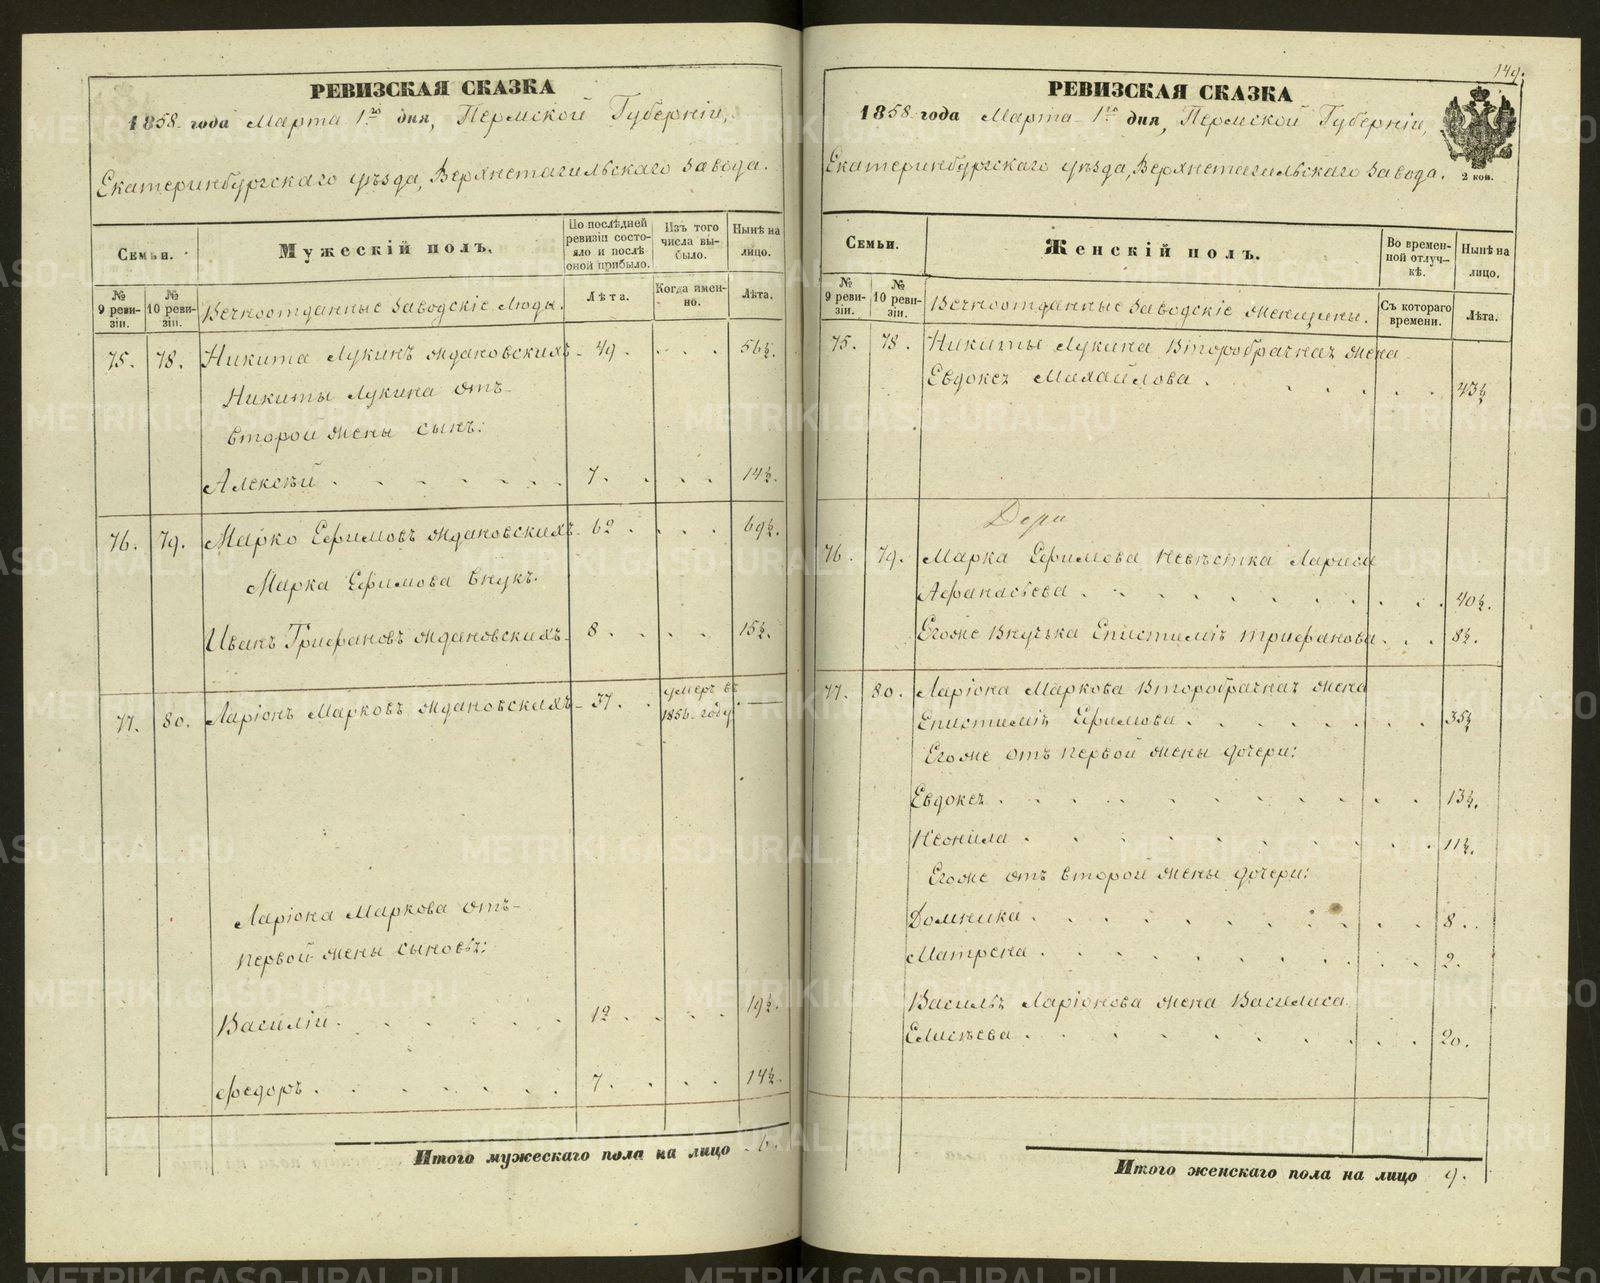 РЕВИЗСКАЯ СКАЗКА
1858 года Марта 1го дня, Пермской Губерніи,
Екатеринбургскаго уѣзда, Верхнетагильскаго завода.
Семьи.
Мужескій полъ.
По послѣдней ревизіи состояло и послѣ оной прибыло.
Изъ того числа выбыло.
Нынѣ на лицо.
№ 9 ревизіи.
№ 10 ревизіи.
Вечноотданные заводскіе люди.
Лѣта.
Когда именно.
Лѣта.
75. 78. Никита Лукинъ Ждановскихъ 49. . . . 56½.
Никиты Лукина отъ
второй жены сынъ:
Алексѣй . . . . . . . 7. . . . 14½.
76. 79. Марко Ефимовъ Ждановскихъ 62 . . . . 69½.
Марка Ефимова внукъ.
Иванъ Трифановъ Ждановскихъ 8 . . . . 15½.
77. 80. Ларіонъ Марковъ Ждановскихъ 37. . умеръ въ 1856 году. —
Ларіона Маркова отъ
первой жены сыновья:
Василій . . . . . . 12 . . . . 19½.
Федоръ . . . . . . . 7. . . . 14½.
Итого мужескаго пола на лицо 6.
149.
РЕВИЗСКАЯ СКАЗКА
1858 года Марта 1го дня, Пермской Губерніи,
Екатеринбургскаго уѣзда, Верхнетагильскаго завода.
2 коп.
Семьи.
Женскій полъ.
Во временной отлучкѣ.
Нынѣ на лицо.
№ 9 ревизіи.
№ 10 ревизіи.
Вечноотданные заводскіе женщины.
Съ котораго времени.
Лѣта.
75. 78. Никиты Лукина второбрачная жена
Евдокея Михайлова . . . . . 43½
76. 79. Марка Ефимова невѣстка Лариса
Афанасьева . . . . . . . . 40½.
Егоже внучька Епистимія Трифанова . . . 8½.
77. 80. Ларіона Маркова второбрачная жена
Епистимія Ефимова . . . . . . . 35½
Егоже отъ первой жены дочери:
Евдокея . . . . . . . . . . 13½.
Неонила . . . . . . . . . . 11½.
Егоже отъ второй жены дочери:
Домника . . . . . . . . . . 8 . .
Матрена . . . . . . . . . . 2.
Василья Ларіонова жена Василиса
Елисѣева . . . . . . . . . . 20.
Итого женскаго пола на лицо 9.
METRIKI.GASO-URAL.RU